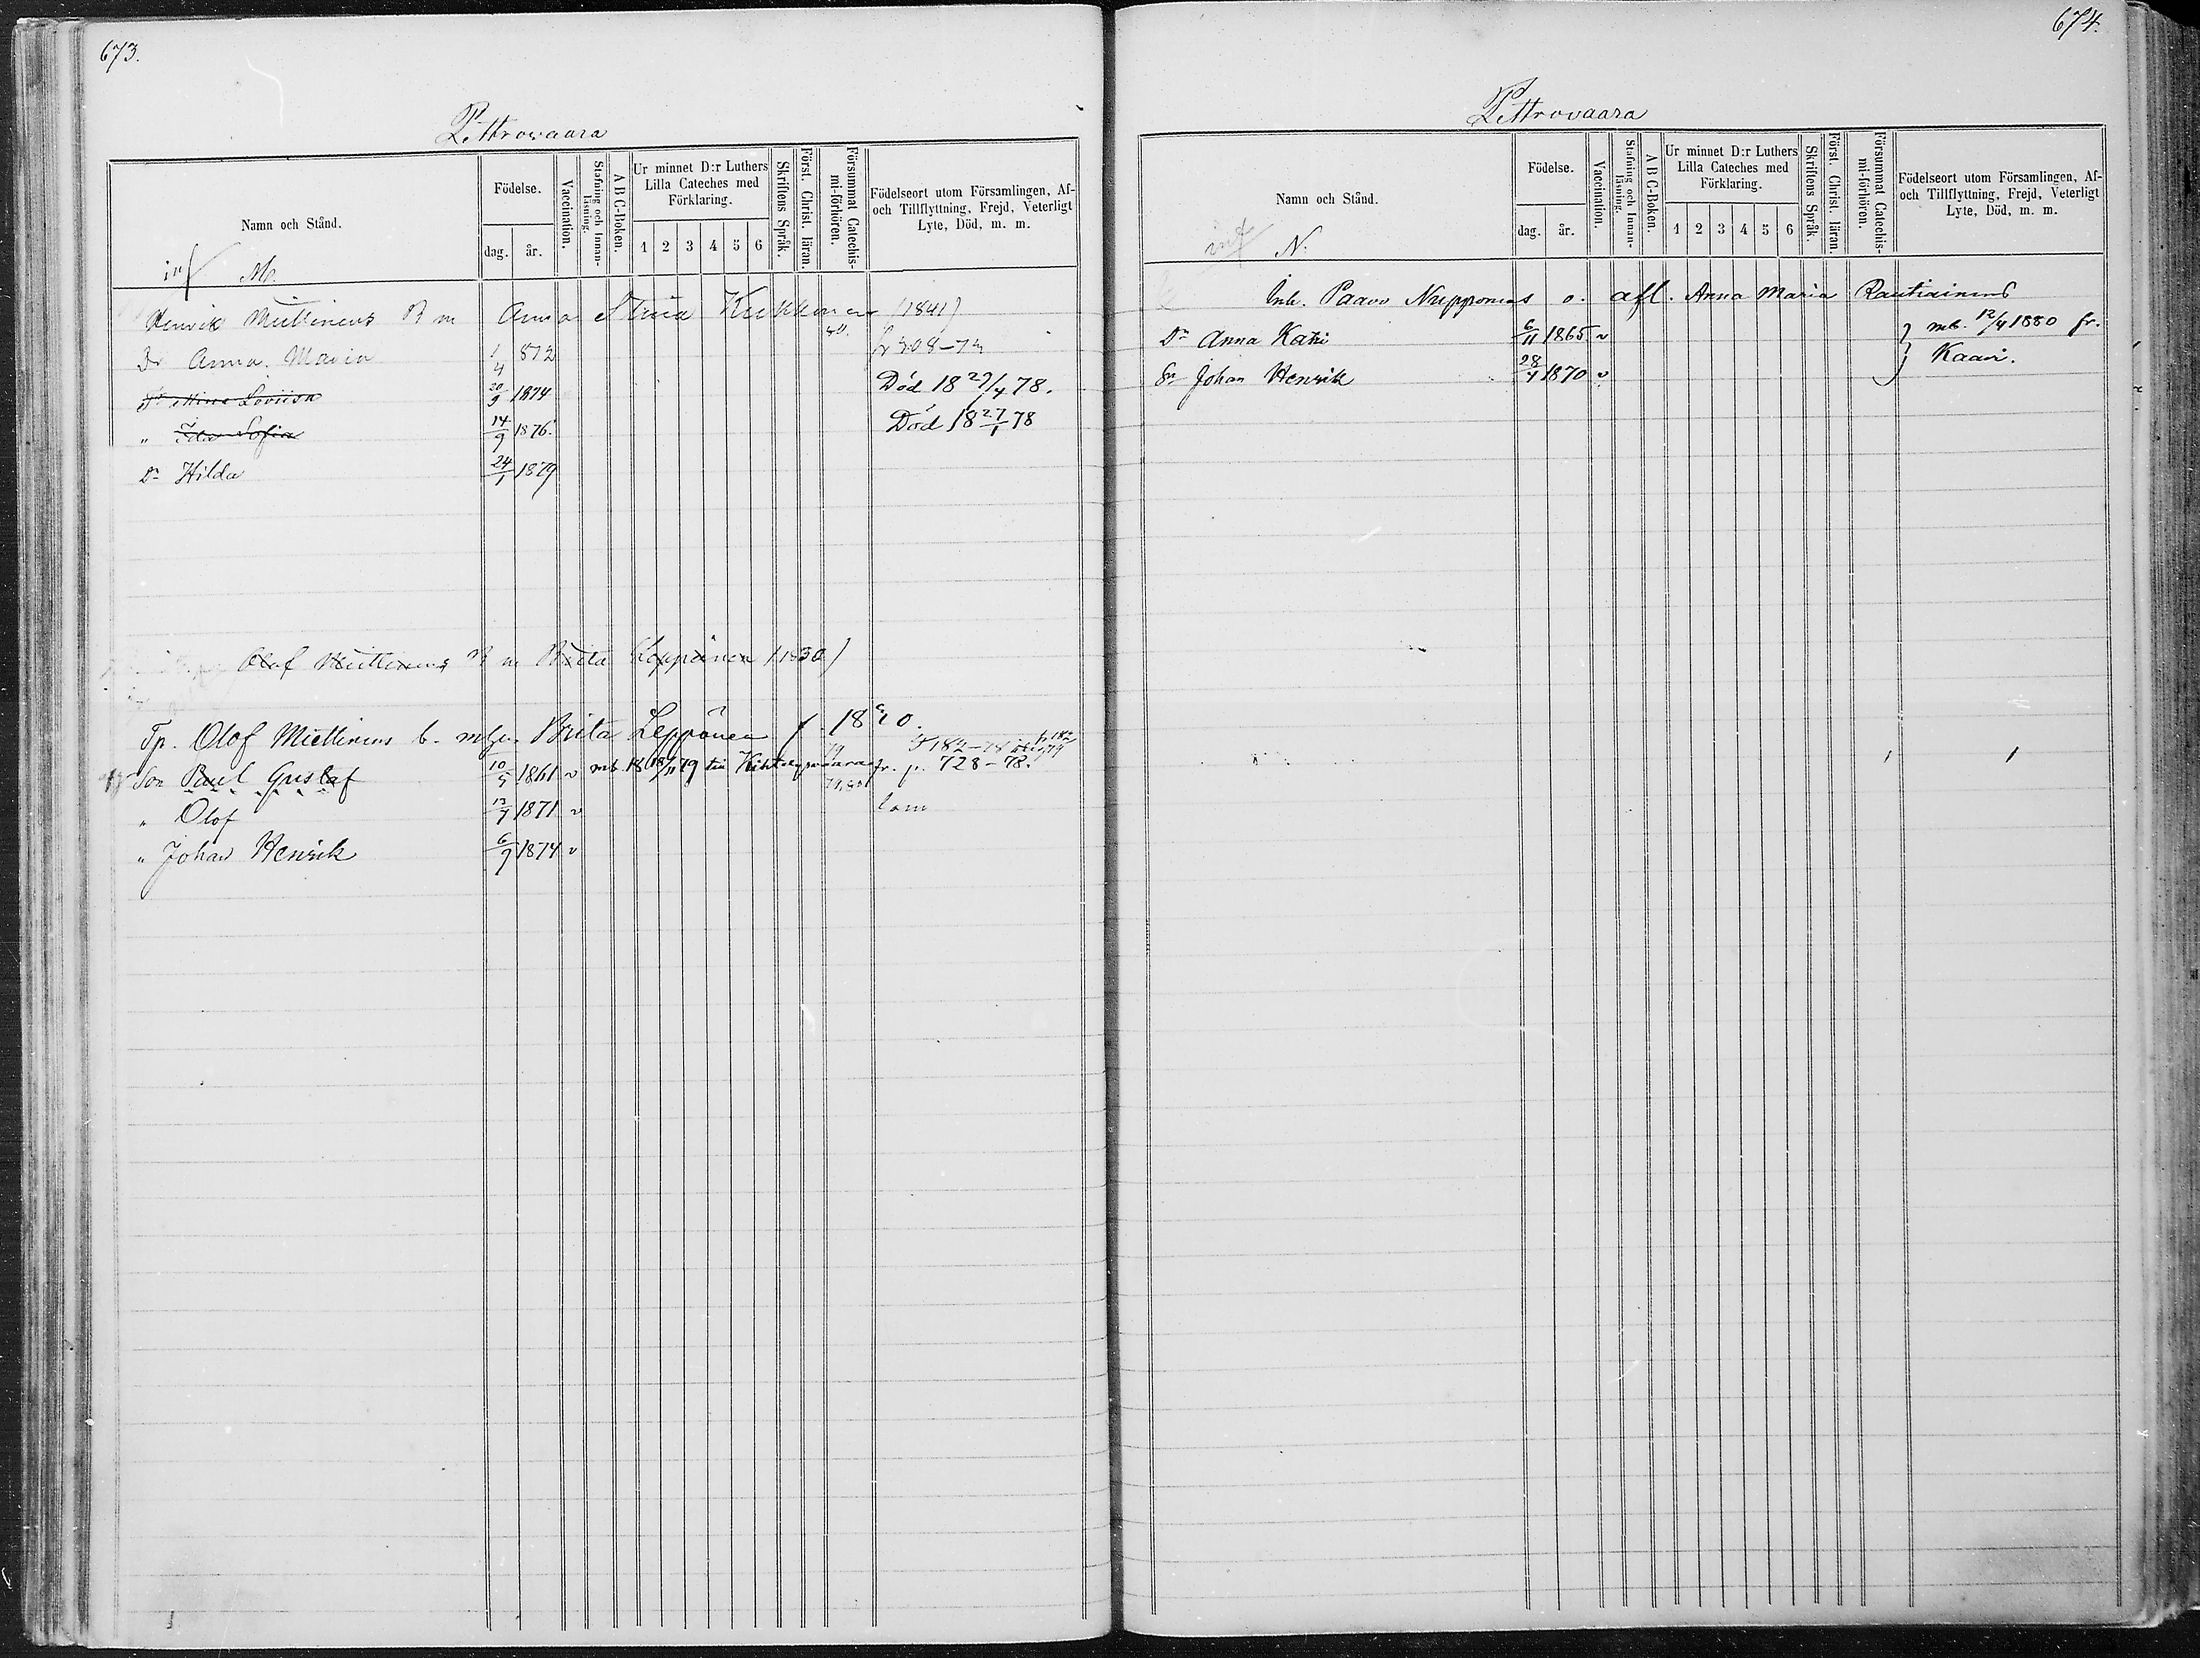 673.
Pettrovaara
Namn och Stånd.
Födelse.
dag.
år.
Vaccination.
Stafning och Innan-läsning.
A B C-Boken.
Ur minnet D:r Luthers Lilla Cateches med Förklaring.
1 2 3 4 5 6
Skriftens Språk.
Först. Christ. läran.
Försummat Catechis-mi-förhören.
Födelseort utom Församlingen, Af-
och Tillflyttning, Frejd, Veterligt
Lyte, Död, m. m.
inf M.
Henrik Miettinens B m Anna Stina Kukkonen (1841)
Dr Anna Maria 1/4 872 fr 308-72
Dr Mina Loviisa 20/9 1874 Död 18 29/4 78.
" Ida Sofia 14/9 1876. Död 18 27/1 78
Dr Hilda 24/1 1879
Olof Miettinens B m Brita Leppänen (1830)
Tp. Olof Miettinens b. m Brita Leppänen f. 18
Son Paul Gustaf 10/5 1861 v mb. 18 79 till fr. p. 728-78.
" Olof 13/7 1871 v
" Johan Henrik 6/9 1874 v
674.
Pettrovaara
Namn och Stånd.
Födelse.
dag.
år.
Vaccination.
Stafning och Innan-läsning.
A B C-Boken.
Ur minnet D:r Luthers Lilla Cateches med Förklaring.
1 2 3 4 5 6
Skriftens Språk.
Först. Christ. läran.
Försummat Catechis-mi-förhören.
Födelseort utom Församlingen, Af-
och Tillflyttning, Frejd, Veterligt
Lyte, Död, m. m.
inf N.
Inh. Paavo Nupponens o. afl. Anna Maria Rautiainens
Dr Anna Kaisi 6/11 1865 v mb. 12/4 1880 fr.
Sn Johan Henrik 28/4 1870 v Kaavi.